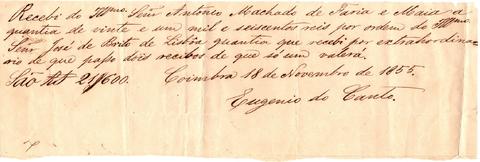 Recebi do Illmo. Senr António Machado de Faria e Maia a
quantia de vinte e um mil e seiscentos reis por ordem do Illmo.
Senr José de Brito de Lisbôa quantia que recibi por extraordina
rio de que passo dois recibos de que só um valera.
São Rs 21$600. Coimbra 18 de Novembro de 1855.
Eugenio do Canto.